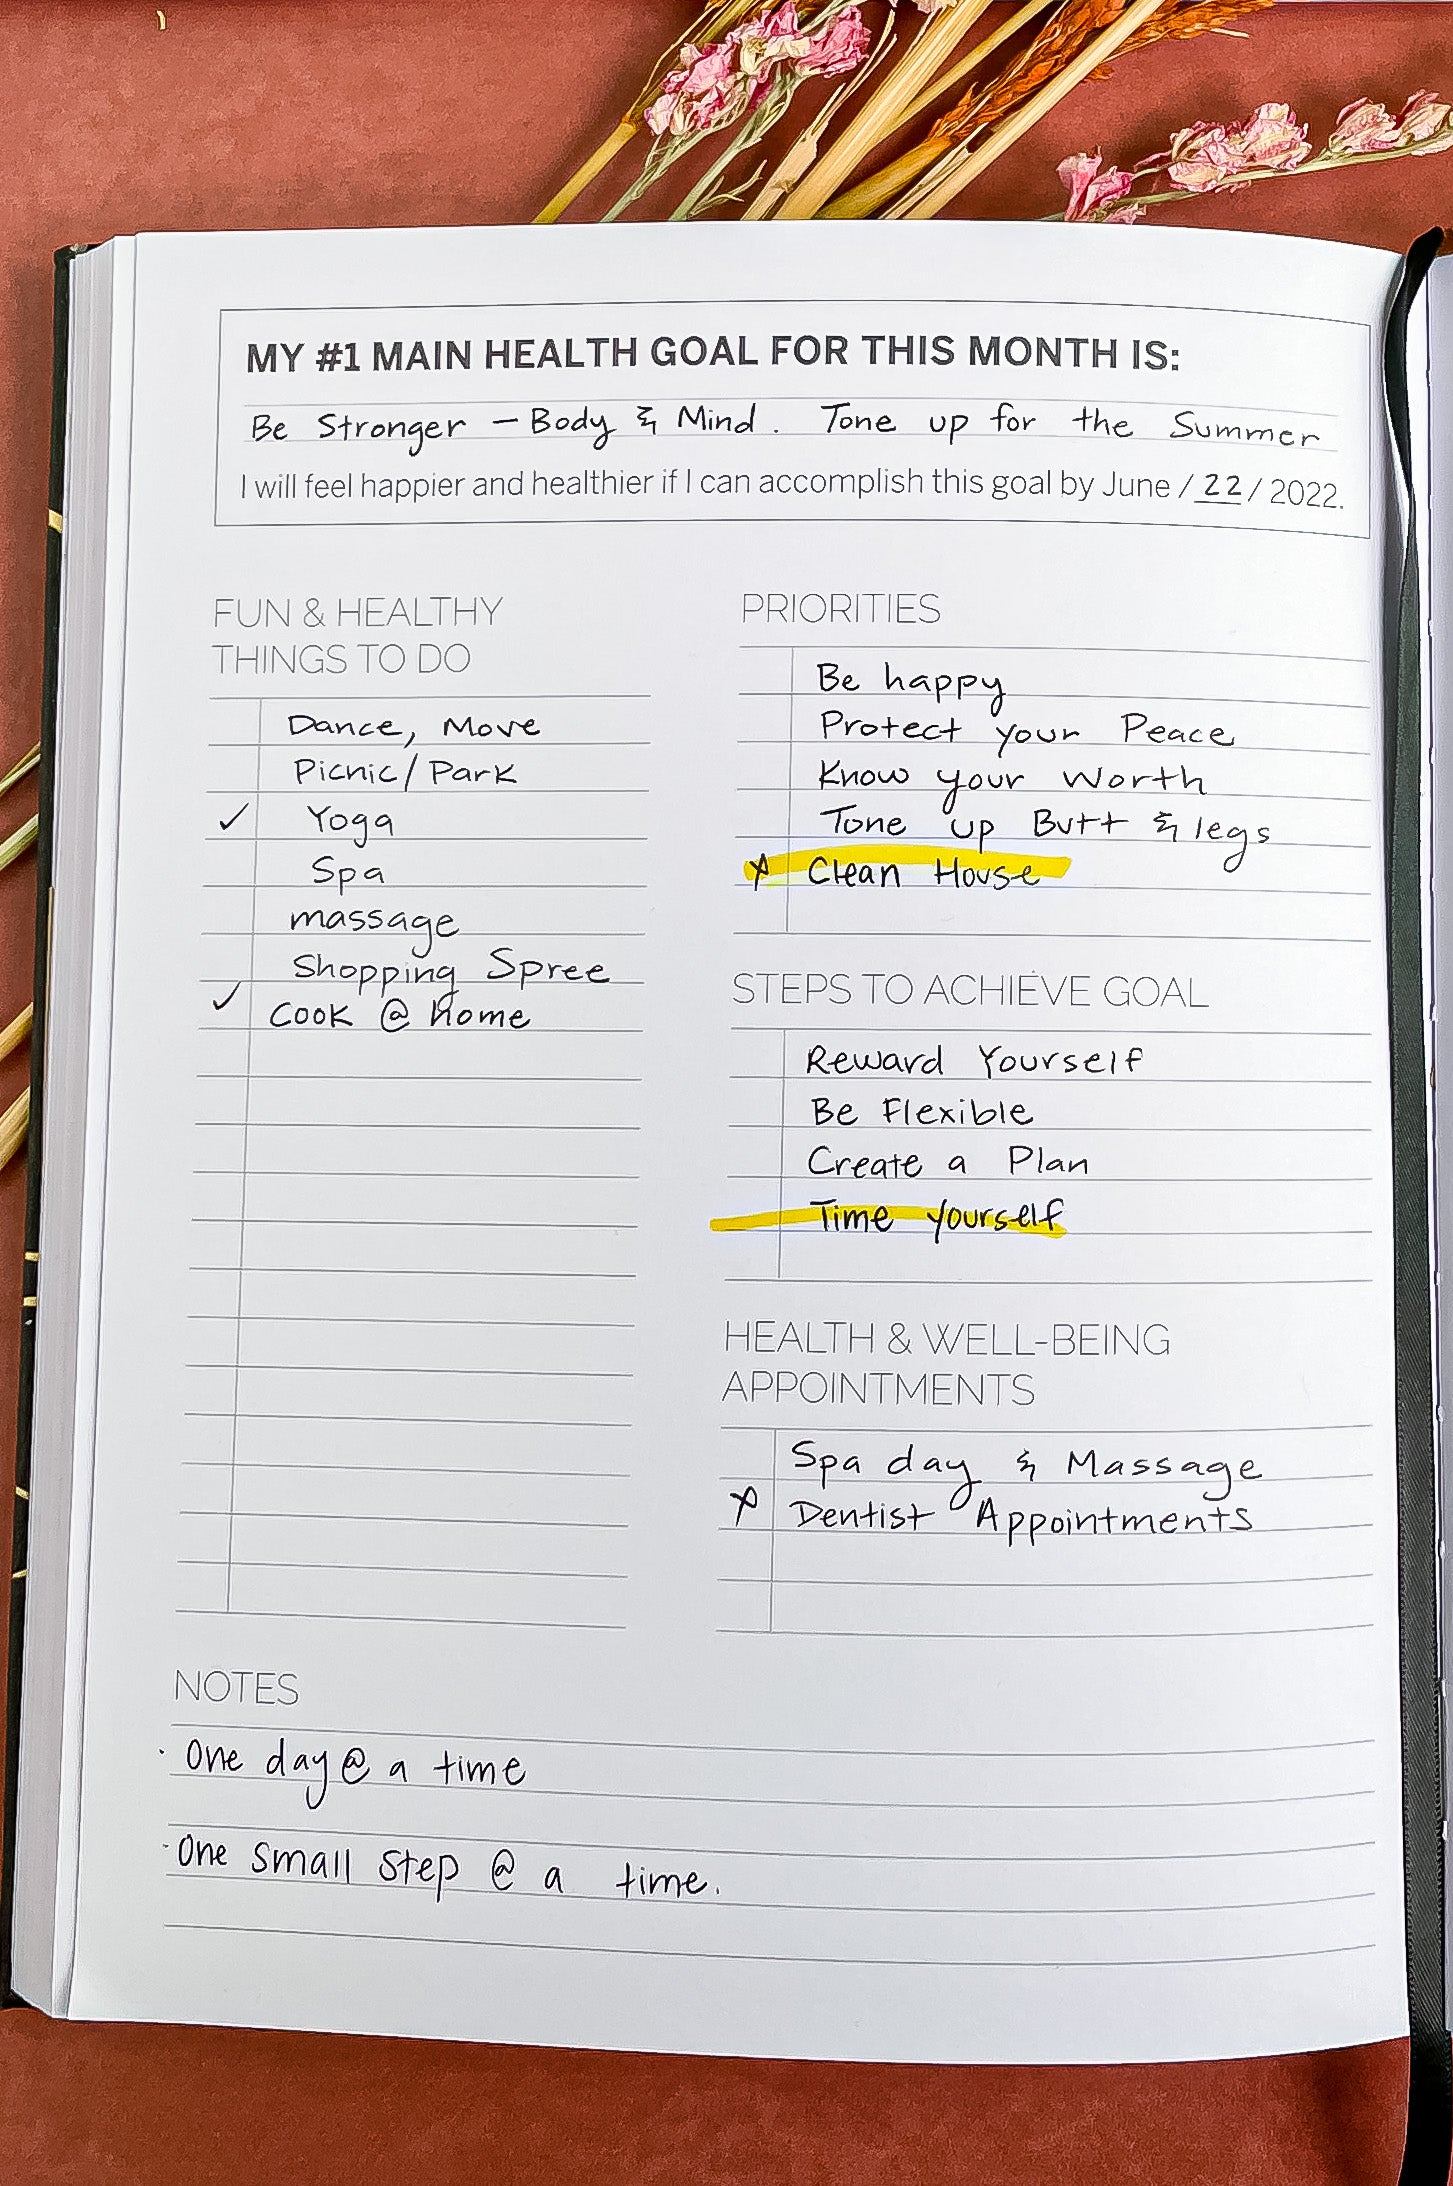 MY #1 MAIN HEALTH GOAL FOR THIS MONTH IS:
Be Stronger – Body & Mind. Tone up for the Summer
I will feel happier and healthier if I can accomplish this goal by June / 22 / 2022.
FUN & HEALTHY
THINGS TO DO
Dance, Move
Picnic/Park
✓ Yoga
Spa
massage
Shopping Spree
✓ Cook @ home
PRIORITIES
Be happy
Protect your Peace
Know your Worth
Tone up Butt & legs
☆ Clean House
STEPS TO ACHIEVE GOAL
Reward Yourself
Be Flexible
Create a Plan
Time yourself
HEALTH & WELL-BEING
APPOINTMENTS
Spa day & Massage
☆ Dentist Appointments
NOTES
· One day @ a time
· One small step @ a time.